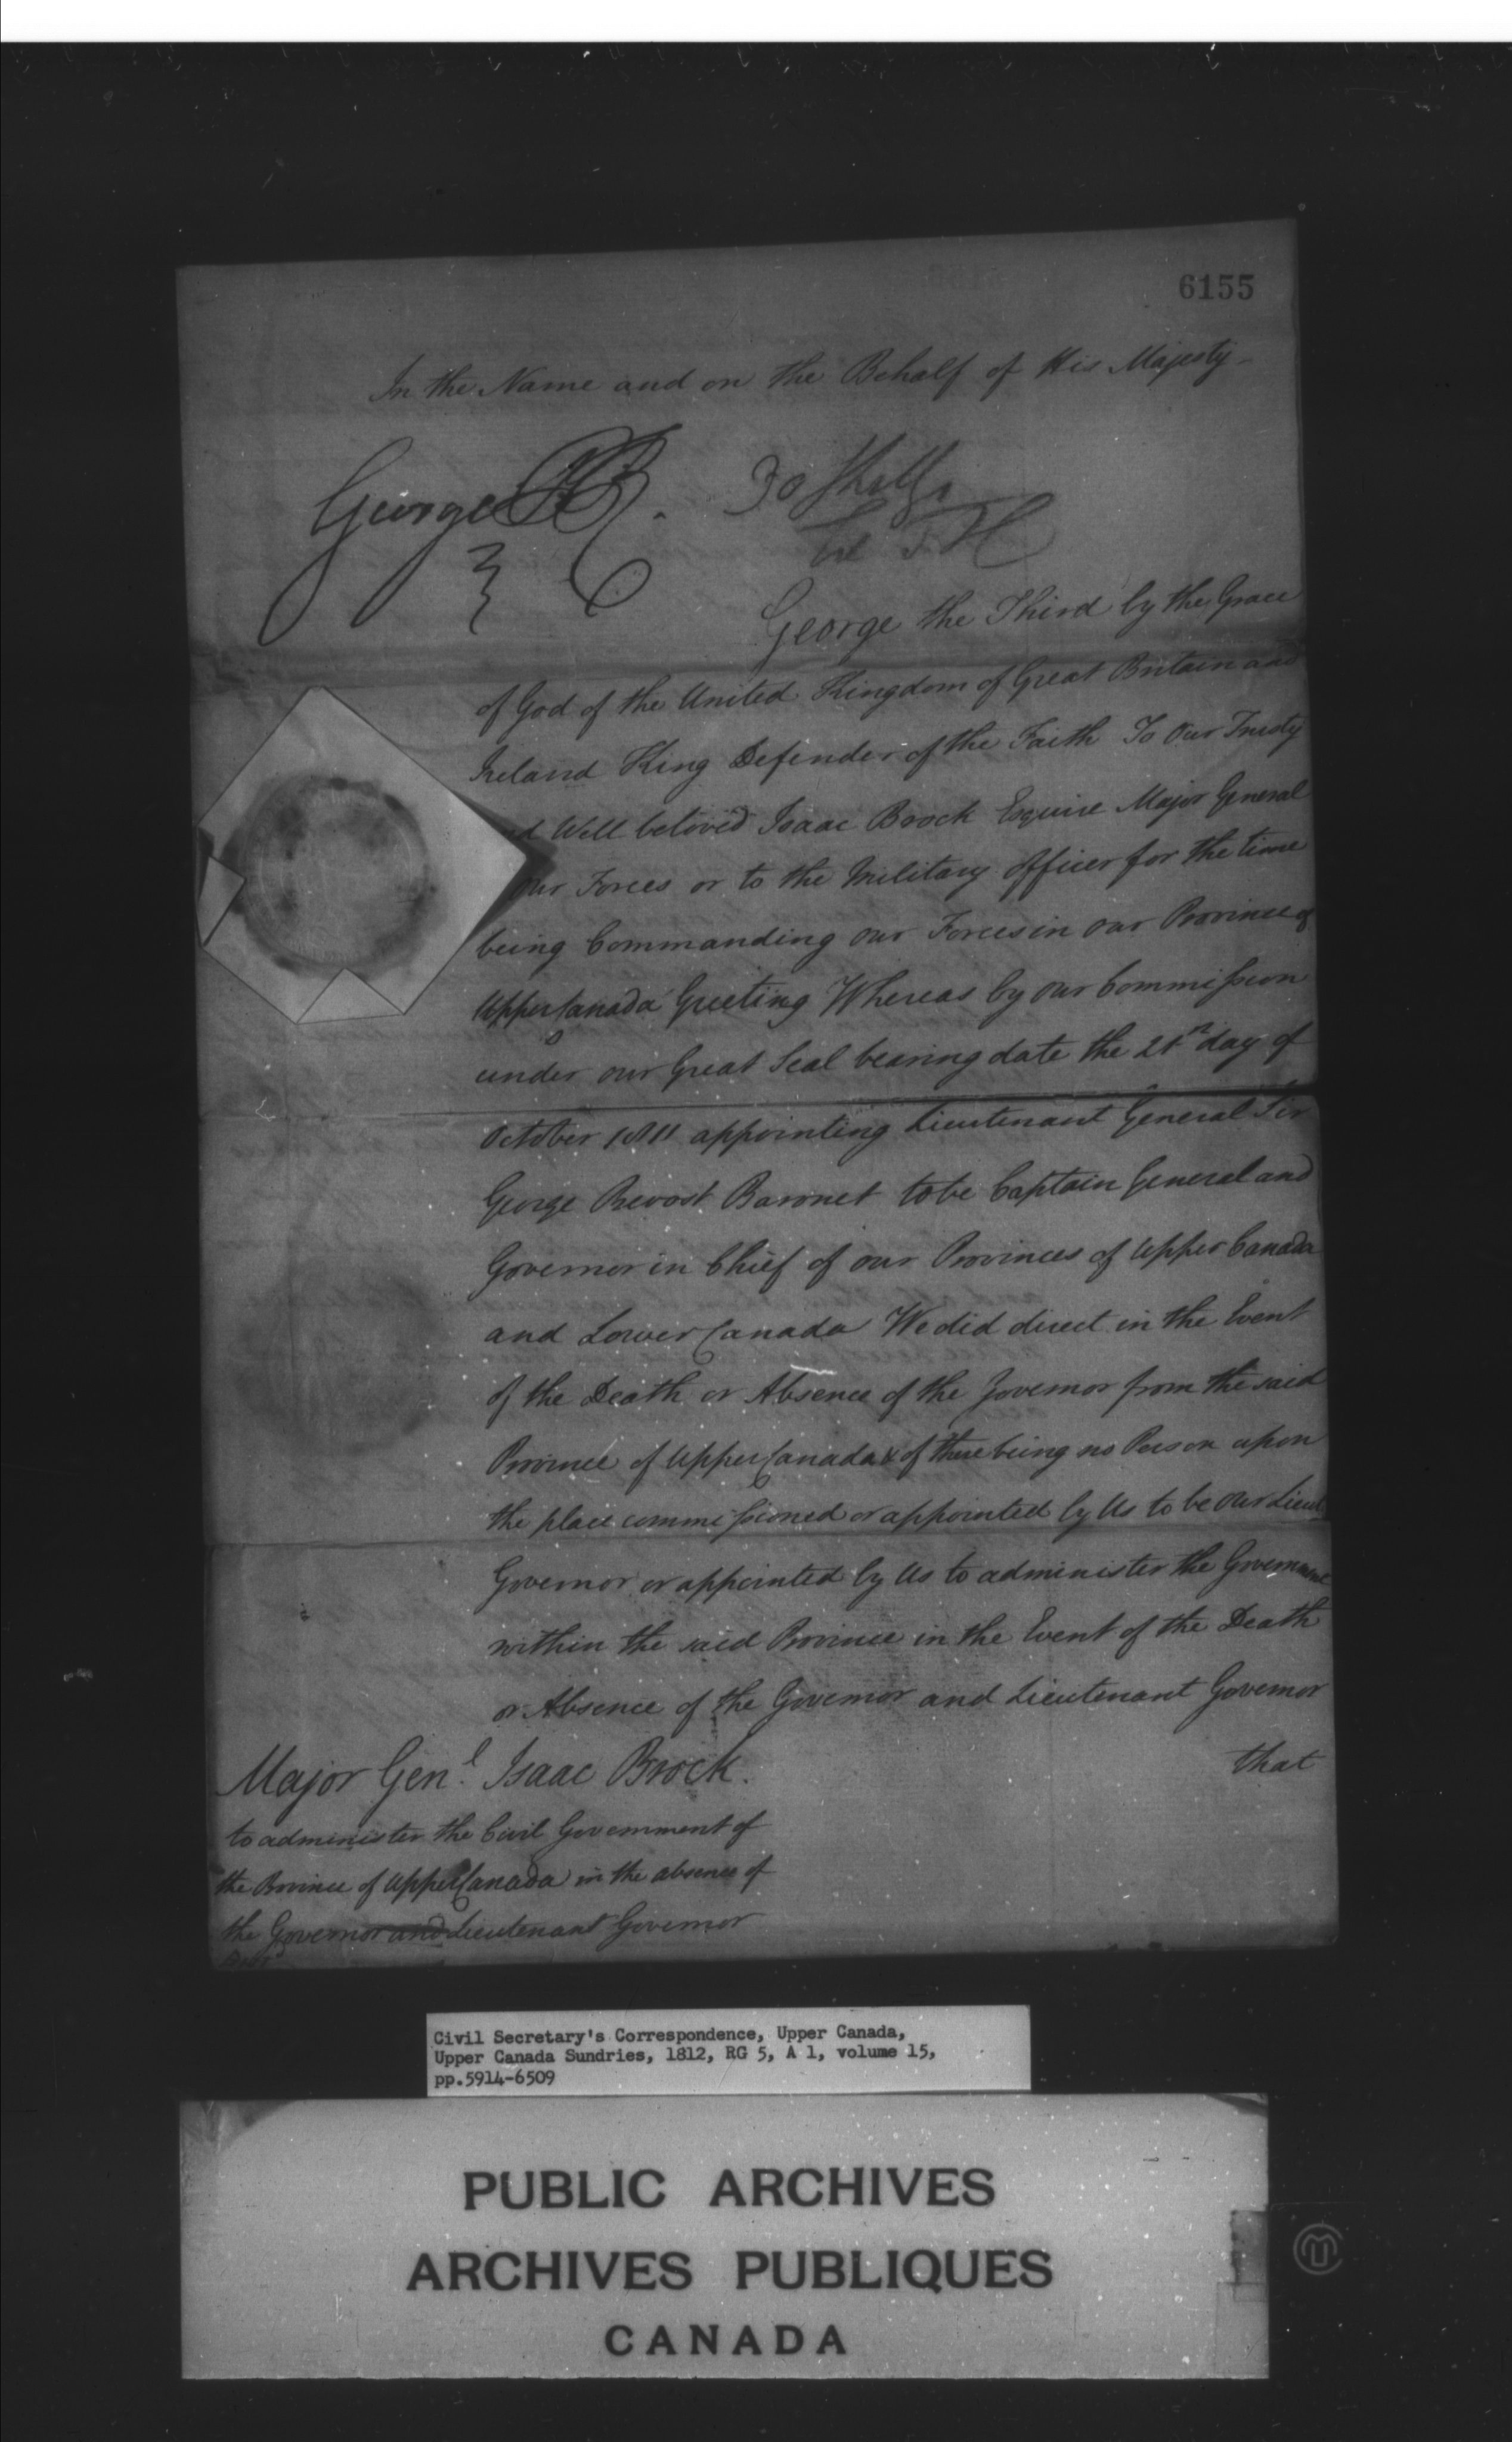 6155
In the Name and on the Behalf of His Majesty
George PR.
George the Third by the Grace
of God of the United Kingdom of Great Britain and
Ireland King Defender of the Faith To Our Trusty
nd Well beloved Isaac Brock Esquire Major General
our Forces or to the Military Officer for the time
being Commanding our Forces in our Province of
Upper Canada Greeting Whereas by our Commission
under our Great Seal bearing date the 21st day of
October 1811 appointing Lieutenant General Sir
George Prevost Baronet to be Captain General and
Governor in Chief of our Provinces of Upper Canada
and Lower Canada We did direct in the Event
of the Death or Absence of the Governor from the said
Province of Upper Canada & of there being no Person upon
the place commissioned or appointed by Us to be our Lieut
Governor or appointed by Us to administer the Government
within the said Province in the Event of the Death
or Absence of the Governor and Lieutenant Governor
that
Major Genl. Isaac Brock.
to administer the Civil Government of
the Province of Upper Canada in the absence of
the Governor and Lieutenant Governor
Civil Secretary's Correspondence, Upper Canada,
Upper Canada Sundries, 1812, RG 5, A 1, volume 15,
pp.5914-6509
PUBLIC ARCHIVES
ARCHIVES PUBLIQUES
CANADA